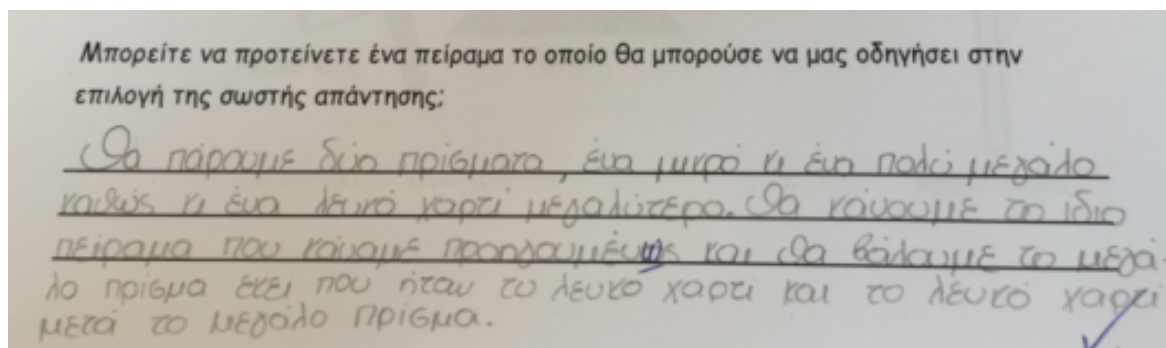 Μπορείτε να προτείνετε ένα πείραμα το οποίο θα μπορούσε να μας οδηγήσει στην
επιλογή της σωστής απάντησης;
Θα πάρουμε δύο πρίσματα, ένα μικρό κι ένα πολύ μεγάλο
καθώς κι ένα λευκό χαρτί μεγαλύτερο. Θα κάνουμε το ίδιο
πείραμα που κάναμε προηγουμένως και θα βάλουμε το μεγά-
λο πρίσμα εκεί που ήταν το λευκό χαρτι και το λευκό χαρτί
μετά το μεγάλο πρίσμα.